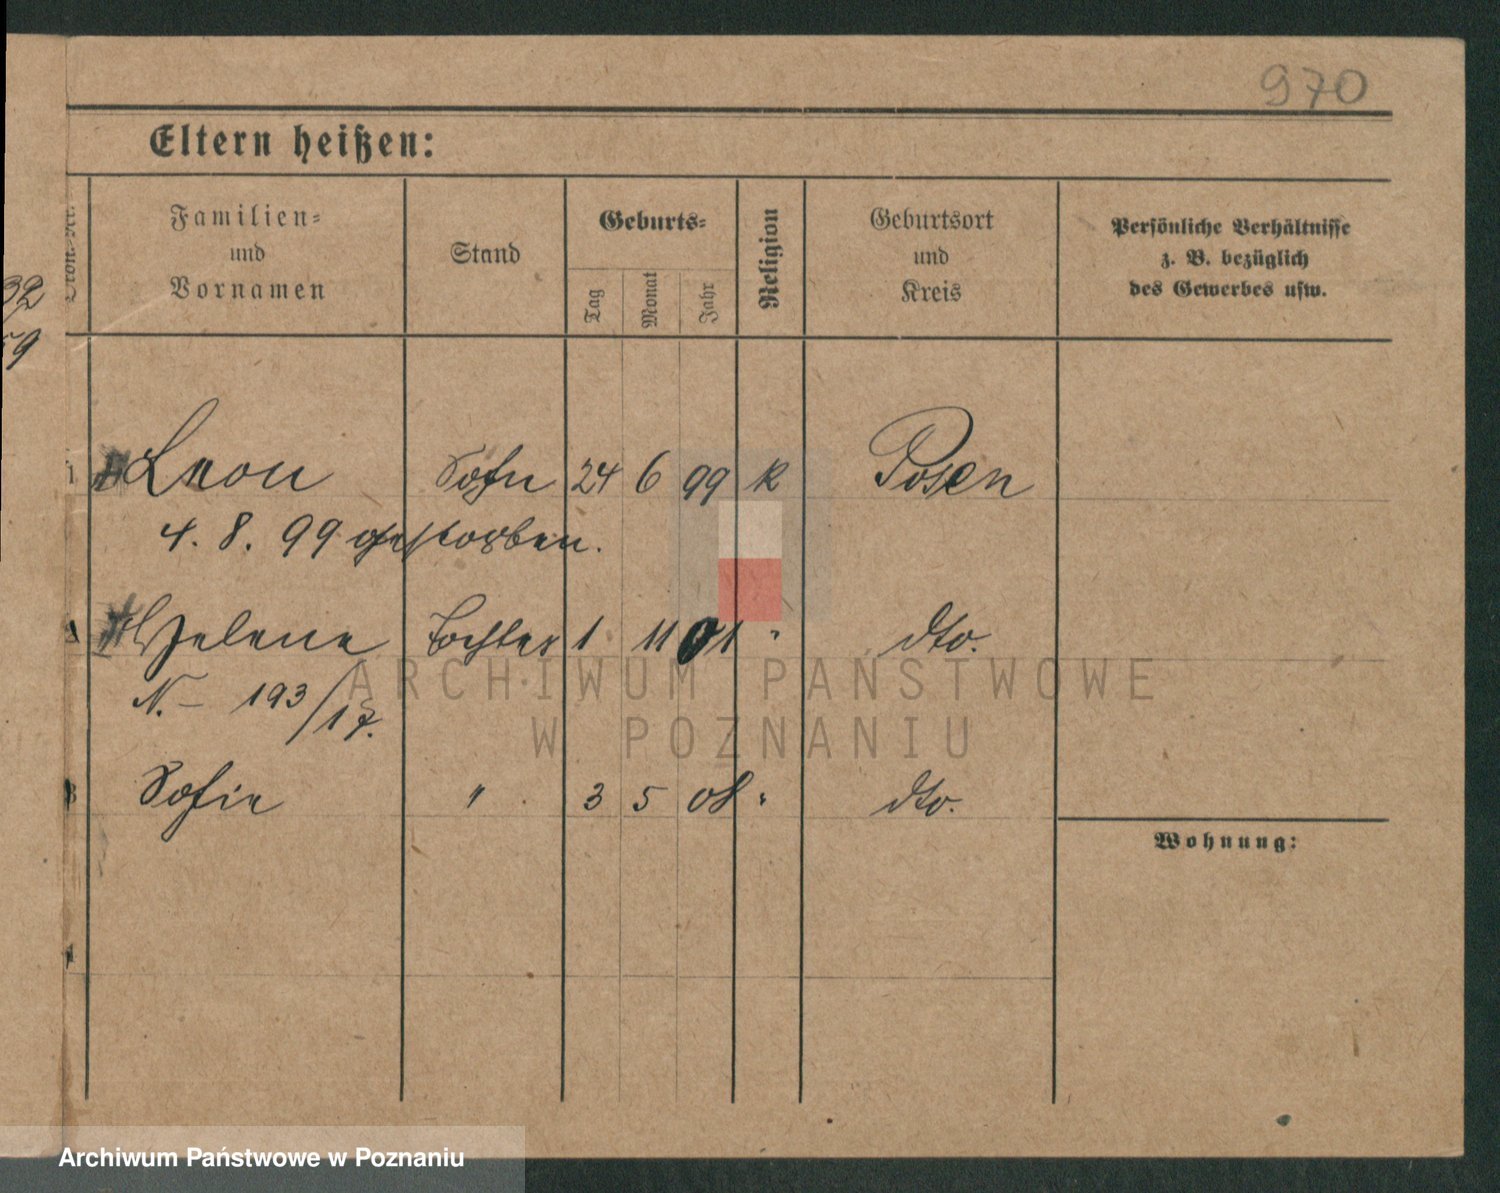 970
Eltern heißen:
Familien=
und
Vornamen
Stand
Geburts=
Tag
Monat
Jahr
Religion
Geburtsort
und
Kreis
Persönliche Verhältnisse
z. B. bezüglich
des Gewerbes usw.
32
59
1 Leon Sohn 24 6 99 k Posen
4. 8. 99 gestorben.
2 Helene Tochter 1 11 01 " dto.
N. – 193/17.
3 Sofie " 3 5 08 " dto.
Wohnung:
4
ARCHIWUM PAŃSTWOWE
W POZNANIU
Archiwum Państwowe w Poznaniu